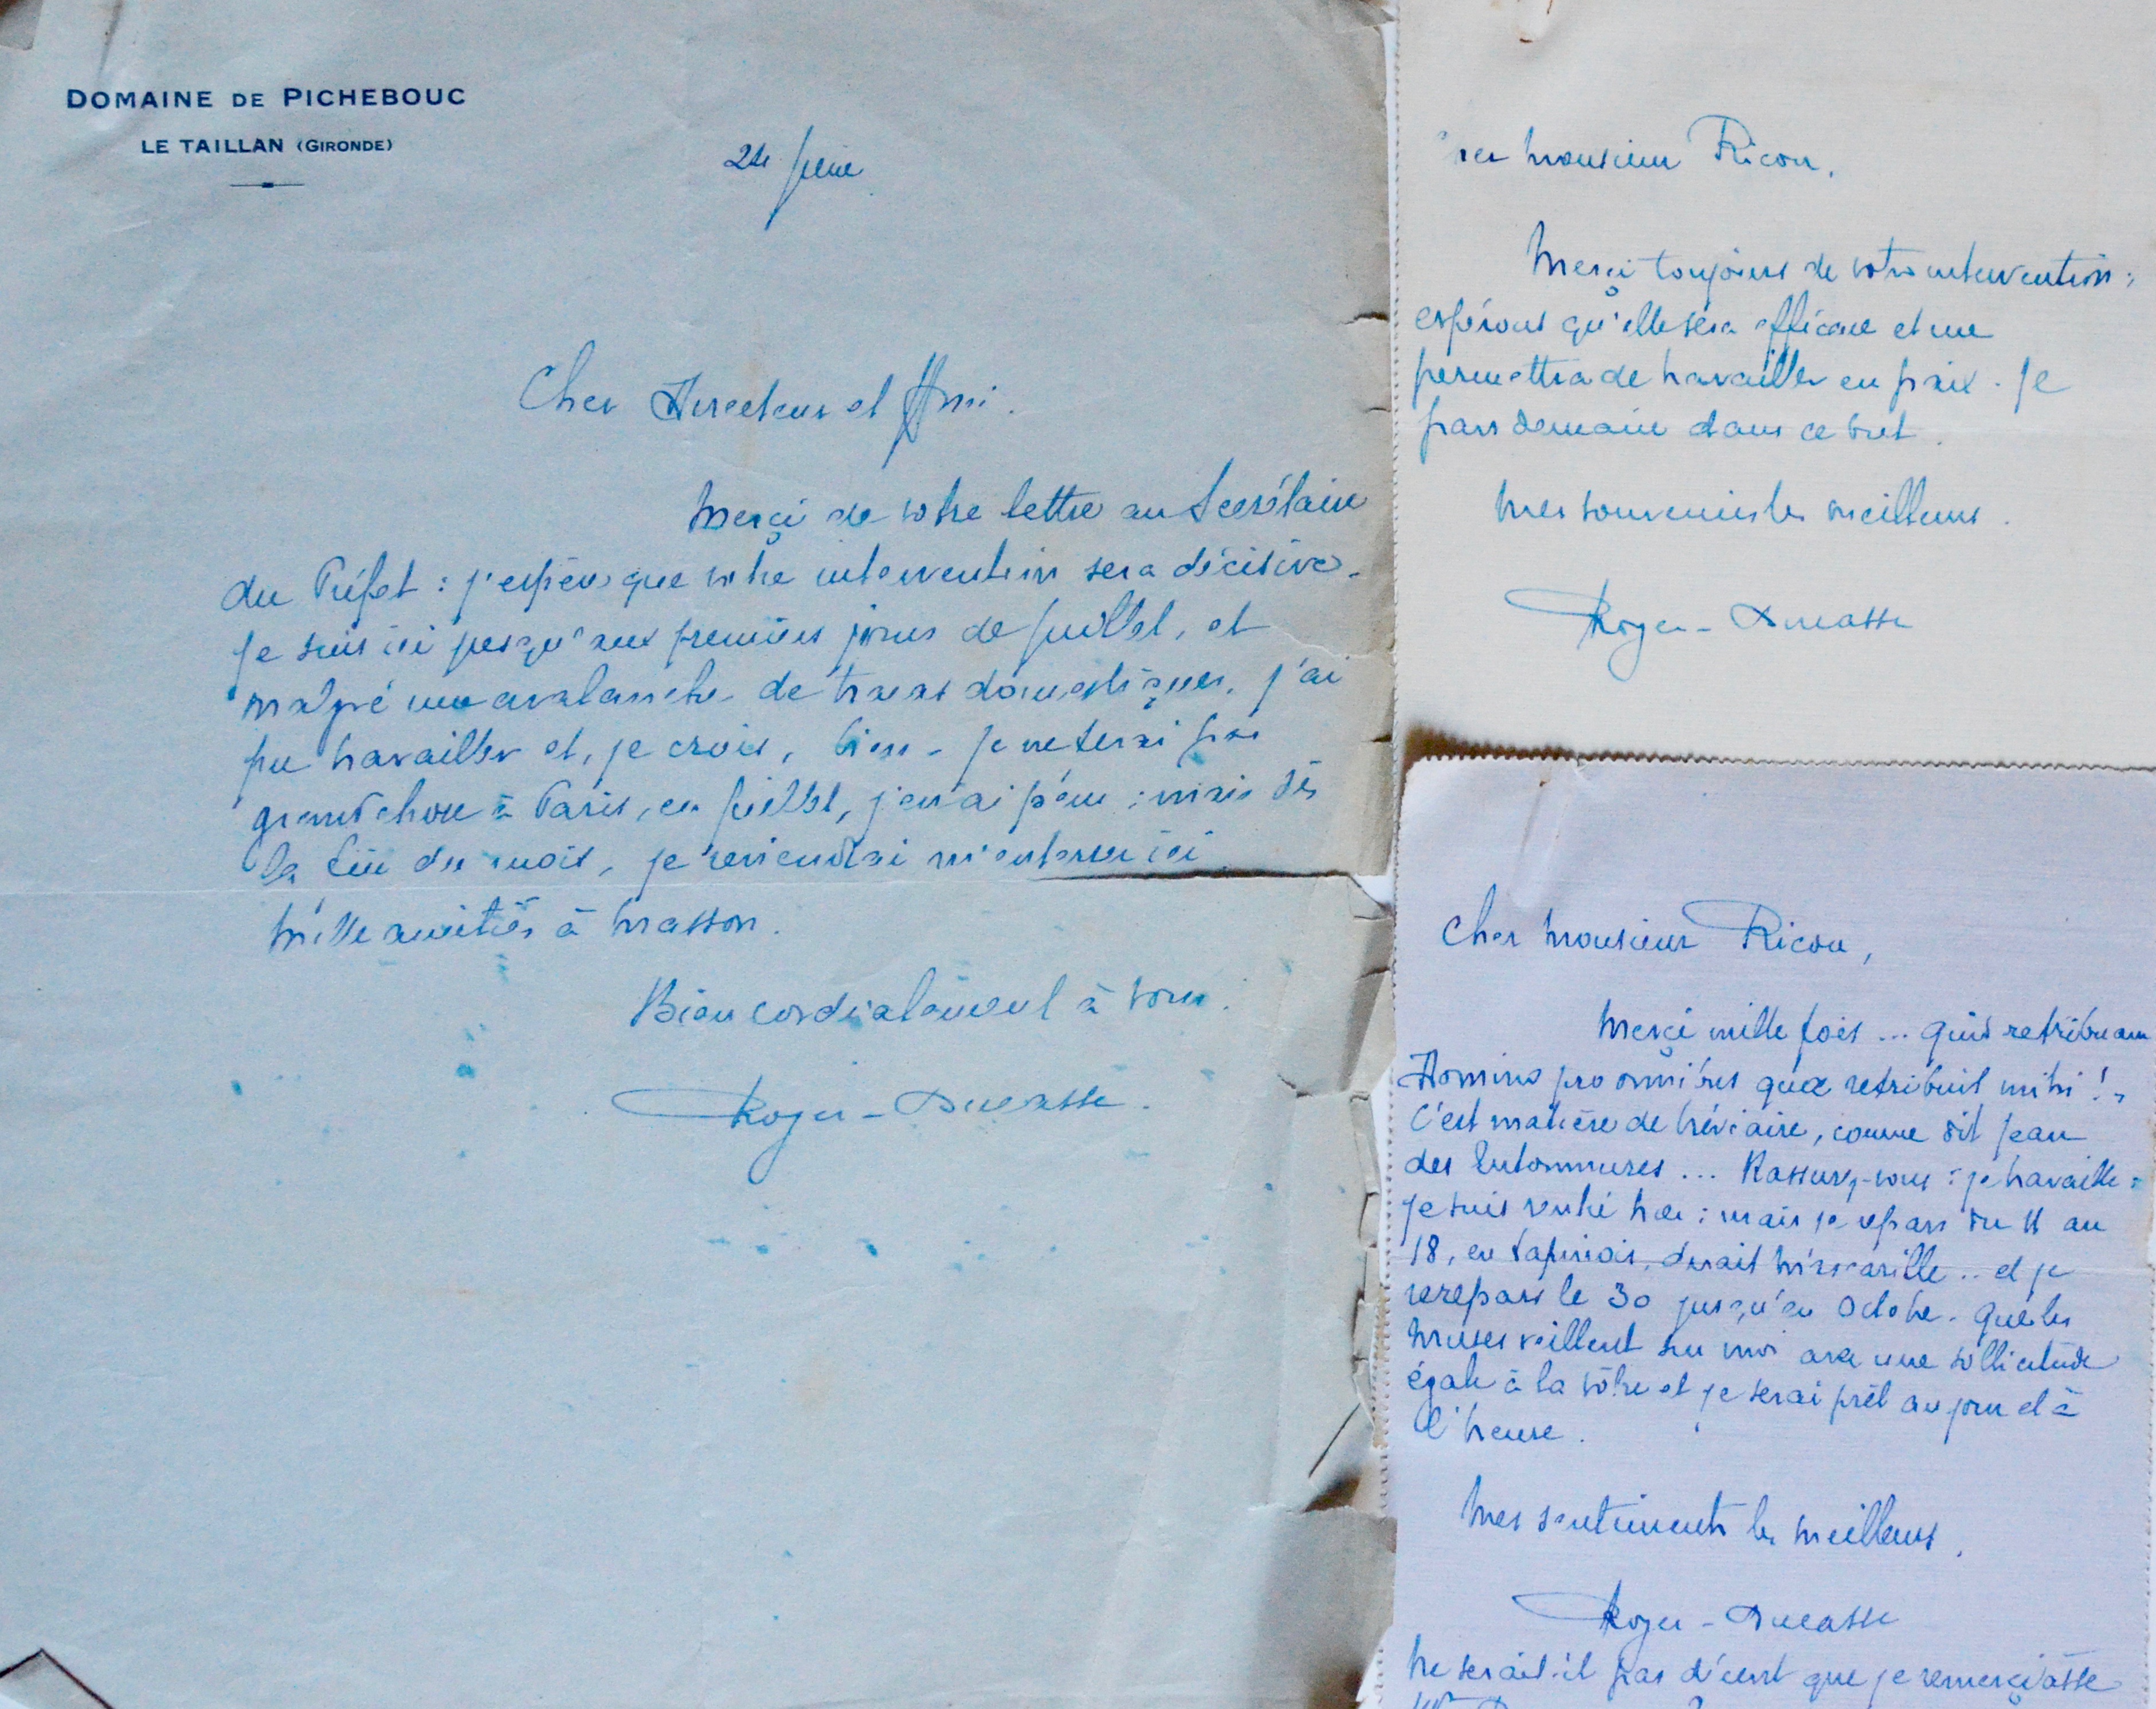 DOMAINE DE PICHEBOUC
LE TAILLAN (GIRONDE)
24 Juin
Cher Directeur et Ami.
Merci de votre lettre au Secrétaire
du Préfet : j'espère que votre intervention sera décisive.
Je suis ici jusqu'aux premiers jours de Juillet, et
malgré une avalanche de tracas domestiques, j'ai
pu travailler et, je crois, bien - Je ne ferai pas
grand chose à Paris, en Juillet, j'en ai peur ; mais dès
la fin du mois, je reviendrai m'enterrer ici
Mille amitiés à Masson.
Bien cordialement à vous.
Roger-Ducasse.
Cher Monsieur Ricou,
Merci toujours de votre intervention ;
espérons qu'elle sera efficace et me
permettra de travailler en paix. Je
pars demain dans ce but.
Mes souvenirs les meilleurs.
Roger-Ducasse
Cher Monsieur Ricou,
Merci mille fois ... Quid retribuam
Domino pro omnibus quae retribuit mihi ! -
C'est matière de bréviaire, comme dit Jean
des Entommures ... Rassurez-vous : je travaille :
Je suis rentré hier : mais je repars du 11 au
18, en tapinois, dirait Mascarille .. et je
rerepars le 30 jusqu'en Octobre. Que les
Muses veillent sur moi avec une sollicitude
égale à la vôtre et je serai prêt au jour et à
l'heure.
Mes sentiments les meilleurs,
Roger-Ducasse
Ne serait-il pas décent que je remerciasse